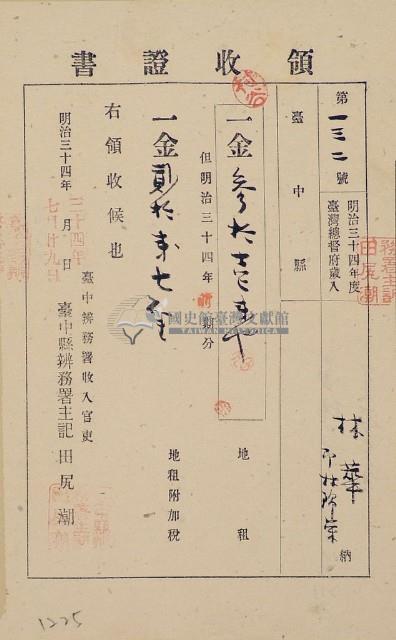 領收證書
第一三二號
明治三十四年度
臺灣總督府歲入
臺中縣
林華
納
一金參拾
地租
但明治三十四年 期分
一金貳拾 七
地租附加稅
右領收候也
明治三十四年 月 日
三十四年
七月廿九日
臺中辨務署收入官吏
臺中縣辨務署主記 田尻潮
務署主記
田尻潮
國史館臺灣文獻館
TAIWAN HISTORICA
1225